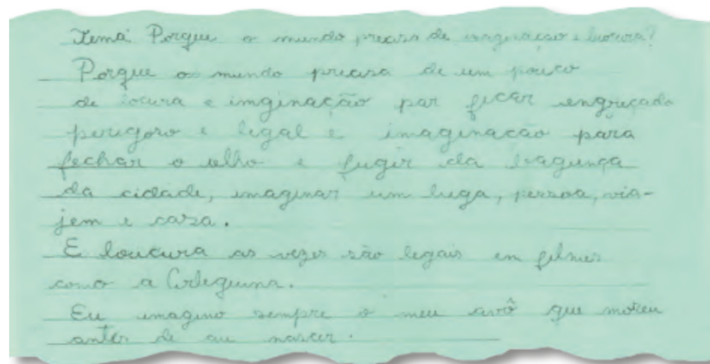 Tema: Porque o mundo precisa de imaginação e loucura?
Porque o mundo precisa de um pouco
de locura e imginação par ficar engraçado
perigoro e legal e imaginacão para
fechar o olho e fugir da bagunça
da cidade, imaginar um luga, pessoa, via-
jem e casa.
E loucura as vezes são legais em filmes
como a Arlequina.
Eu imagino sempre o meu avô que morreu
antes de eu nascer.